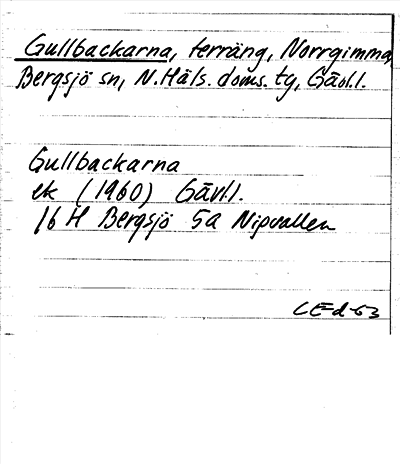 Gullbackarna, terräng, Norrgimma,
Bergsjö sn, N. Häls. doms. tg, Gävl.l.
Gullbackarna
ek (1960) Gävl.l.
16 H Bergsjö 5a Nipvallen
CEd-63